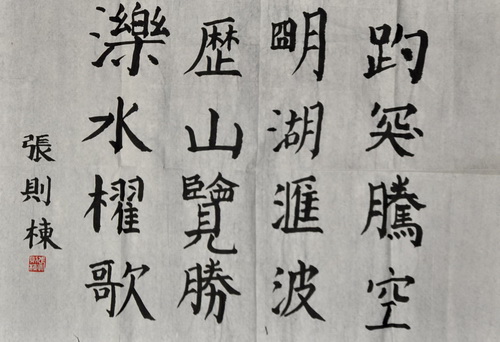 趵突騰空
朙湖滙波
歷山覽勝
濼水櫂歌
張則棟